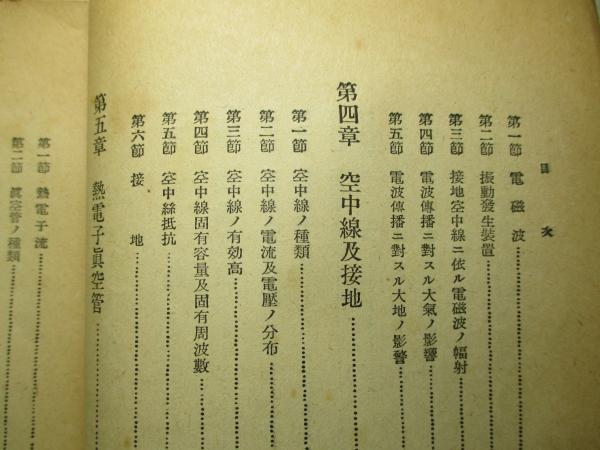 目次
第一節 電磁波
第二節 振動發生裝置
第三節 接地空中線ニ依ル電磁波ノ輻射
第四節 電波傳播ニ對スル大氣ノ影響
第五節 電波傳播ニ對スル大地ノ影響
第四章 空中線及接地
第一節 空中線ノ種類
第二節 空中線ノ電流及電壓ノ分布
第三節 空中線ノ有効高
第四節 空中線固有容量及固有周波數
第五節 空中絲抵抗
第六節 接地
第五章 熱電子眞空管
第一節 熱電子流
第二節 眞空管ノ種類